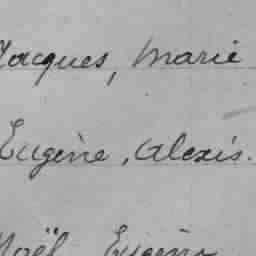 Jacques, Marie
Eugène, Alexis.
Noël Eugène